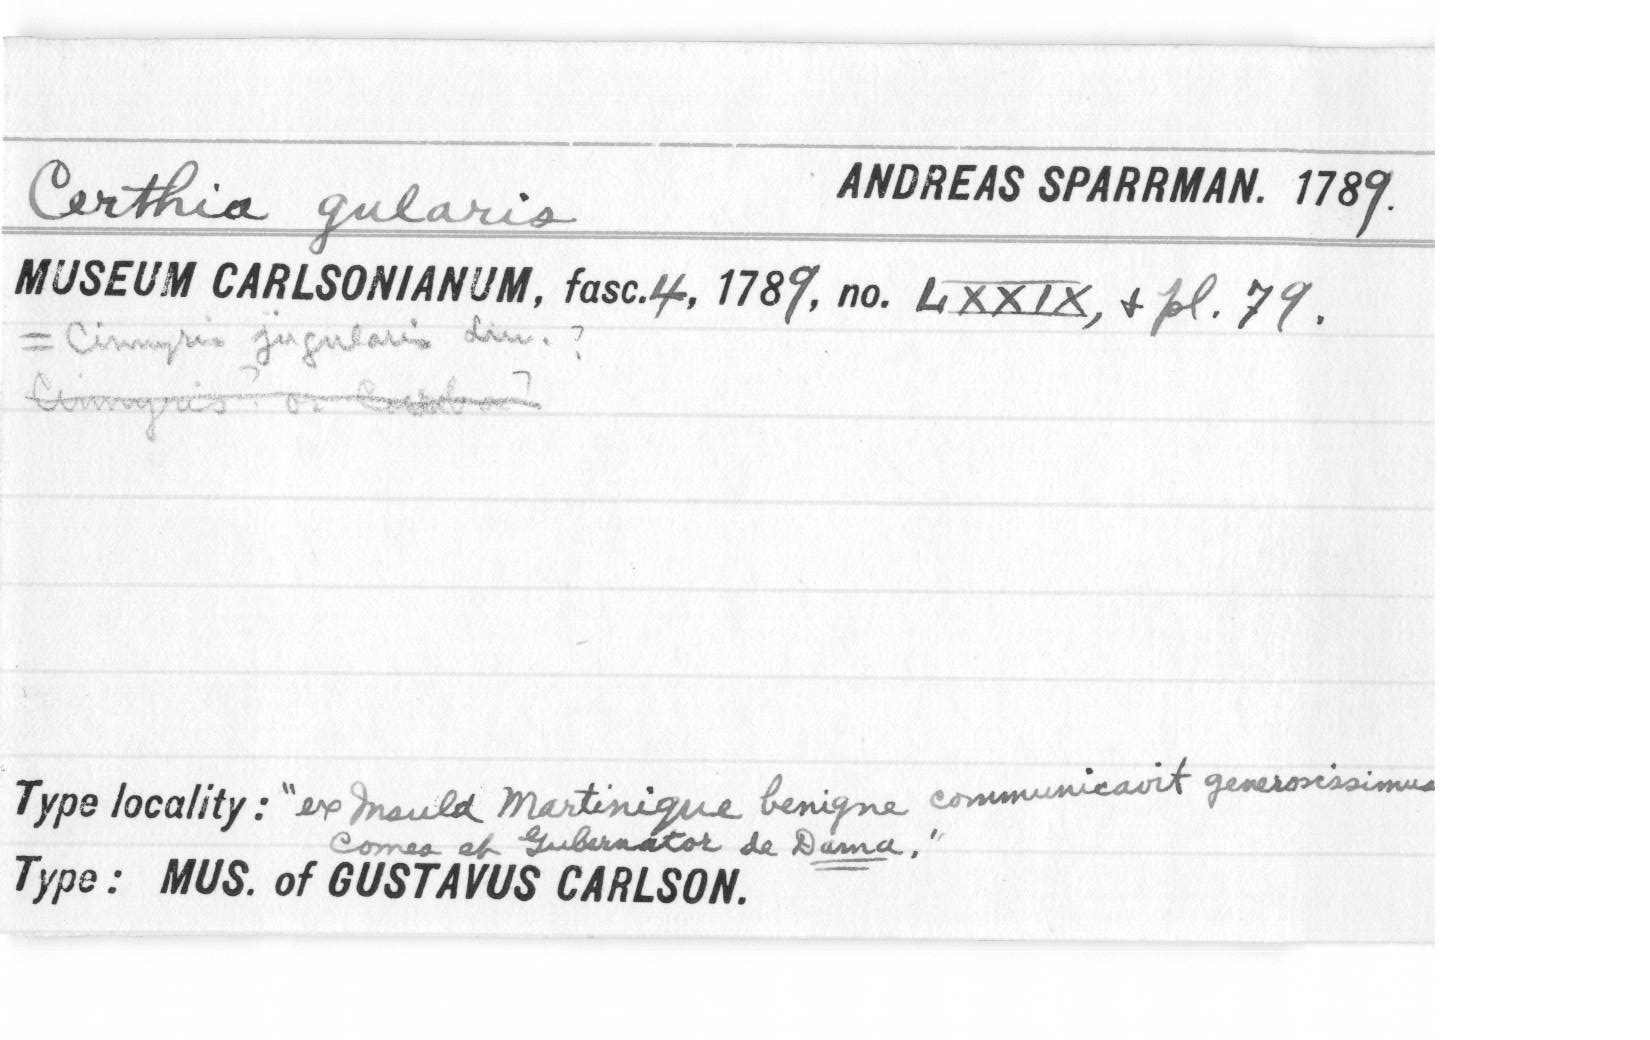 Certhia gularis ANDREAS SPARRMAN. 1789.
MUSEUM CARLSONIANUM, fasc. 4, 1789, no. LXXIX, & pl. 79.
= Cinnyris jugularis Lin. ?
Cinnyris? or Coereba?
Type locality: "ex Insulâ Martinique benigne communicavit generosissimus
Comes et Gubernator de Darna."
Type: MUS. of GUSTAVUS CARLSON.